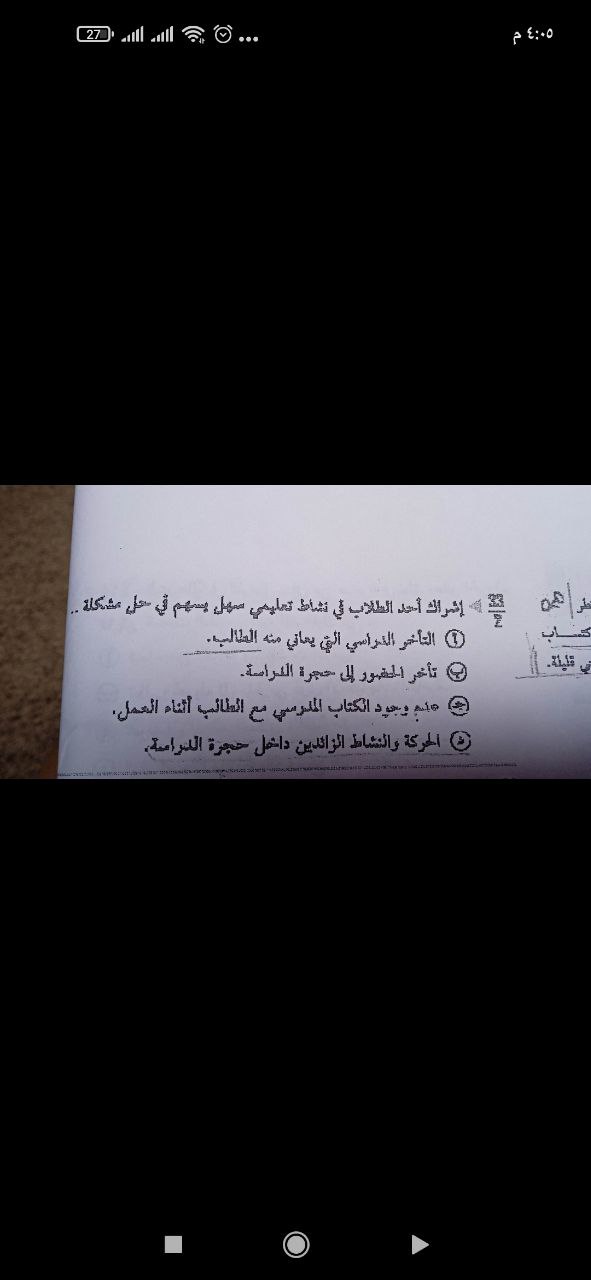 ٤:٠٥ م
27
33
2
إشراك أحد الطلاب في نشاط تعليمي سهل يسهم في حل مشكلة ..
أ التأخر الدراسي التي يعاني منه الطالب.
ب تأخر الحضور إلى حجرة الدراسة.
جـ عدم وجود الكتاب المدرسي مع الطالب أثناء العمل.
د الحركة والنشاط الزائدين داخل حجرة الدراسة.
قليلة.